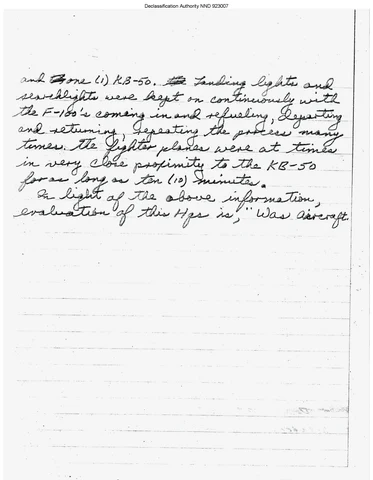 Declassification Authority NND 923007
and one (1) KB-50. Landing lights and
searchlights were kept on continuously with
the F-100's coming in and refueling, departing
and returning, repeating the process many
times. the fighter planes were at times
in very close proximity to the KB-50
for as long as ten (10) minutes.
In light of the above information,
evaluation of this Hqs is, "Was aircraft